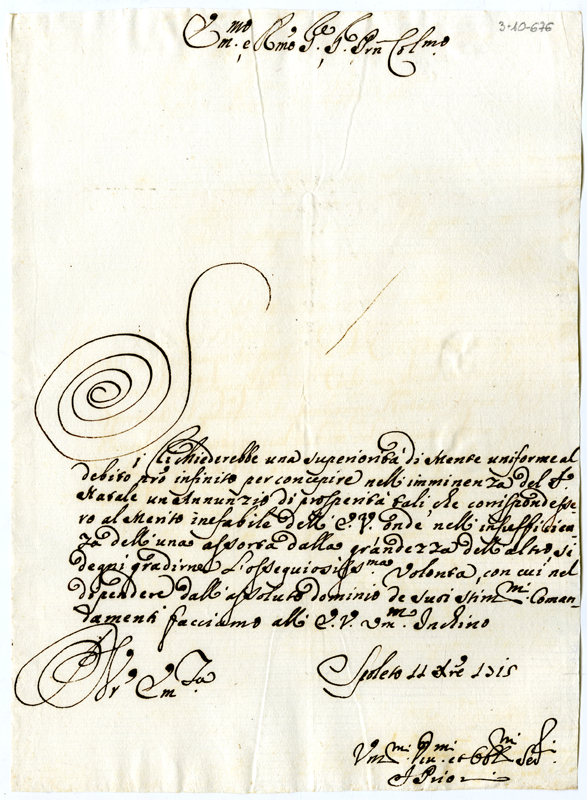 3-10-676
Em.mo e Rmo Sre, Sr. Prn Colmo
Si chiederebbe una superiorità di Mente uniforme al
debito pro infinito per concepire nell'imminenza del S.
Natale un Annunzio di prosperità tali, che corrispondesse
ro al Merito inefabile dell'E.V. onde nell'insufficien
za dell'una assorta dalla grandezza dell'altro, si
degni gradirne l'ossequiosiss.ma Volontà, con cui nel
dipendere dall'assoluto dominio de suoi Stim.mi Coman
damenti facciamo all'E.V. Um.mo Inchino
Vr'a Em.za
Spoleto 11 Xre 1715
Um.mi Diu.mi et Obl.mi Se.
I Priori